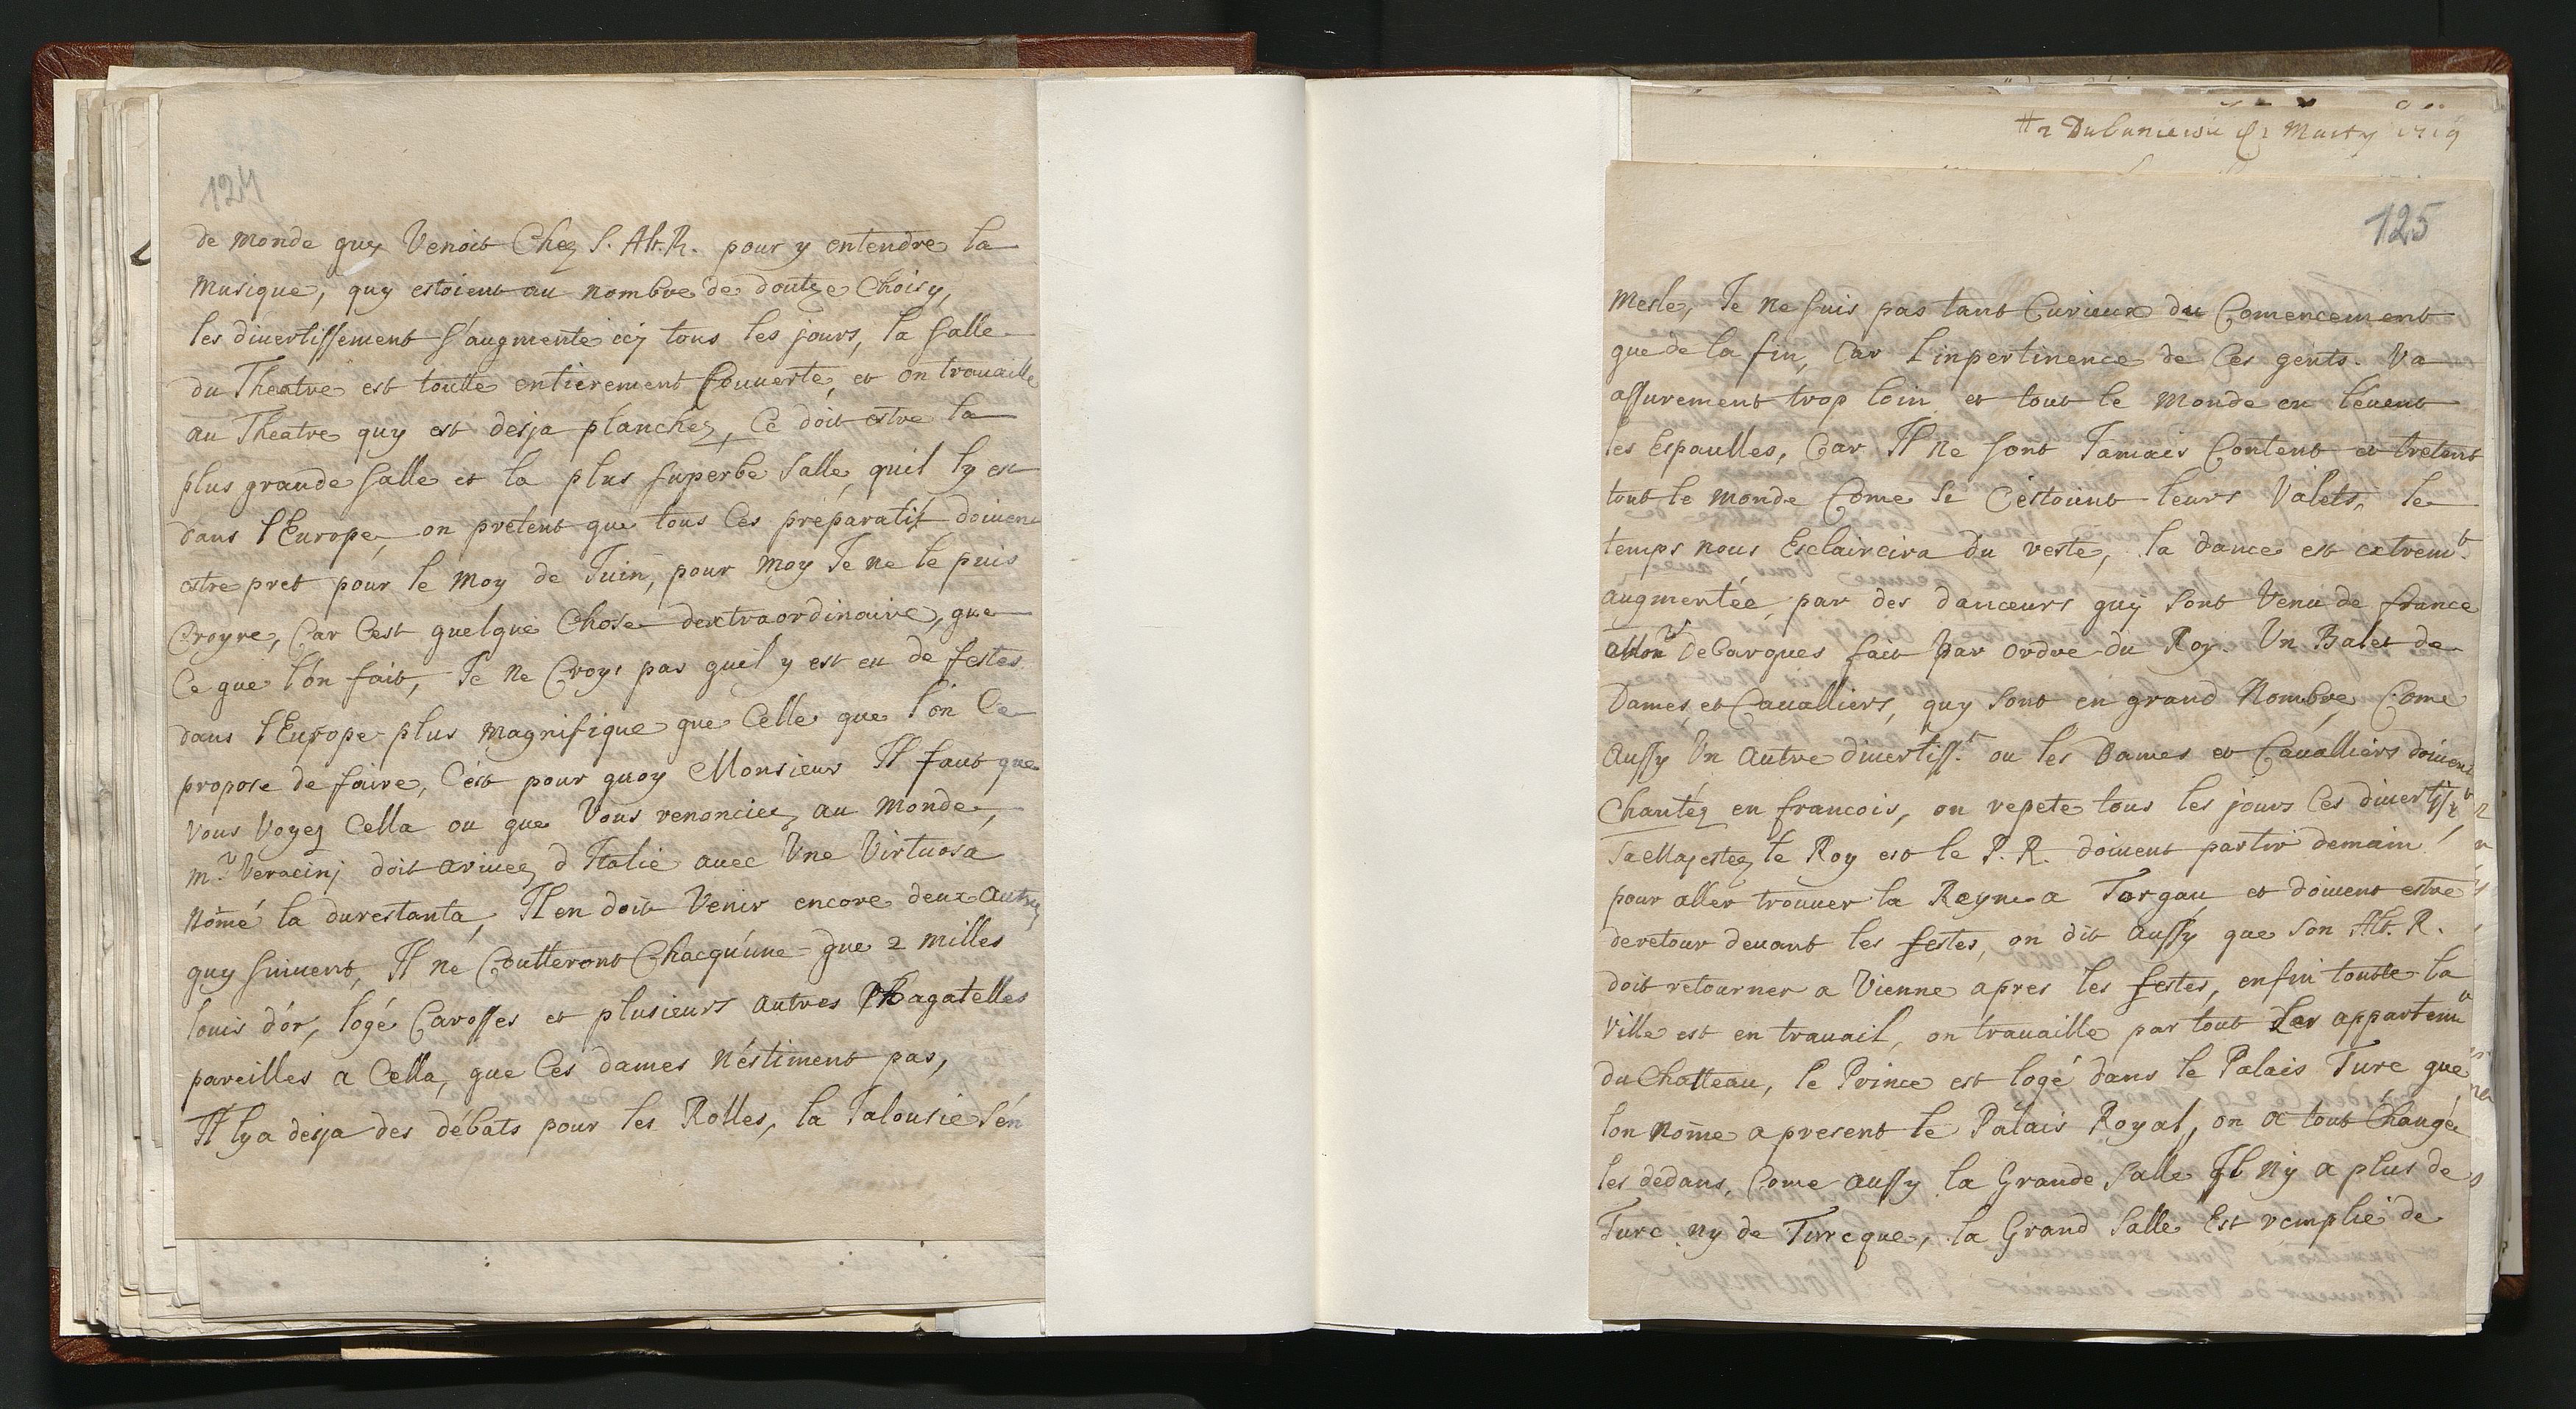 124
de monde quy Venoit Chez S. Alt. R. pour y entendre la
Musique, quy estoient au nombre de doutze Choisy,
les divertissement s'augmente icy tous les jours, la salle
du Theatre est toutte entierement Couverte, et on travaille
au Theatre quy est desja planchez, Ce doit estre la
plus grande salle et la plus superbe Salle, quil ly est
dans l'Europe, on pretent que tous Ces preparatif doivent
estre pret pour le Moy de Juin, pour Moy Je ne le puis
Croyre, Car Cest quelque Chose dextraordinaire, que
Ce que l'on fait, Je ne Croys pas quil y est eu de festes
dans l'Europe plus Magnifique que Celle que l'on Ce
propose de faire, C'est pour quoy Monsieur Il faut que
Vous Voyez Cella ou que Vous renonciez au Monde,
Mr. Veracinj doit arivez d'Italie avec Une Virtuosa
Nomé la durestanta, Il en doit Venir encore deux autres
quy suivent, Il ne Coutteront Chacqu'une que 2 Milles
louis d'or, logé Carosses et plusieurs autres Bagatelles
pareilles a Cella, que Ces dames N'estiment pas,
Il ly a desja des débats pour les Rolles, la Jalousie S'en
125
Mesle, Je ne suis pas tant Curieux du Comencement
que de la fin, Car l'inpertinence de Ces gents. Va
assurement trop loin et tout le Monde en levent
les Espaulles, Car Il ne sont Jamais Content et tretent
tout le Monde Come Se C'estoient leurs Valets, le
temps nous Esclaircira du reste, la dance est extremt.
augmentée par des danceurs quy sont Venu de france
Monr DeBarques fait par ordre du Roy. Un Balet de
Dames, et Cavalliers, quy sont en grand Nombre, Come
Aussy Un Autre divertisst. ou les Dames et Cavalliers doivent
Chantéz en francois, on repete tous les jours Ces divertisst
Sa Majestez le Roy est le P. R. doivent partir demain
pour aller trouver la Reyne a Torgau et doivent estre
de retour devant les festes, on dit Aussy que Son Alt. R.
doit retourner a Vienne apres les festes, enfin toutte la
Ville est en travail, on travaille par tout Les appartemt
du Chatteau, le Prince est logé dans le Palais Turc que
lon Nome a present le Palais Royal, on a tout Changée
les dedans, Come aussy la Grande Salle Il n'y a plus de
Turc ny de Turcque, la Grand Salle Est remplie de